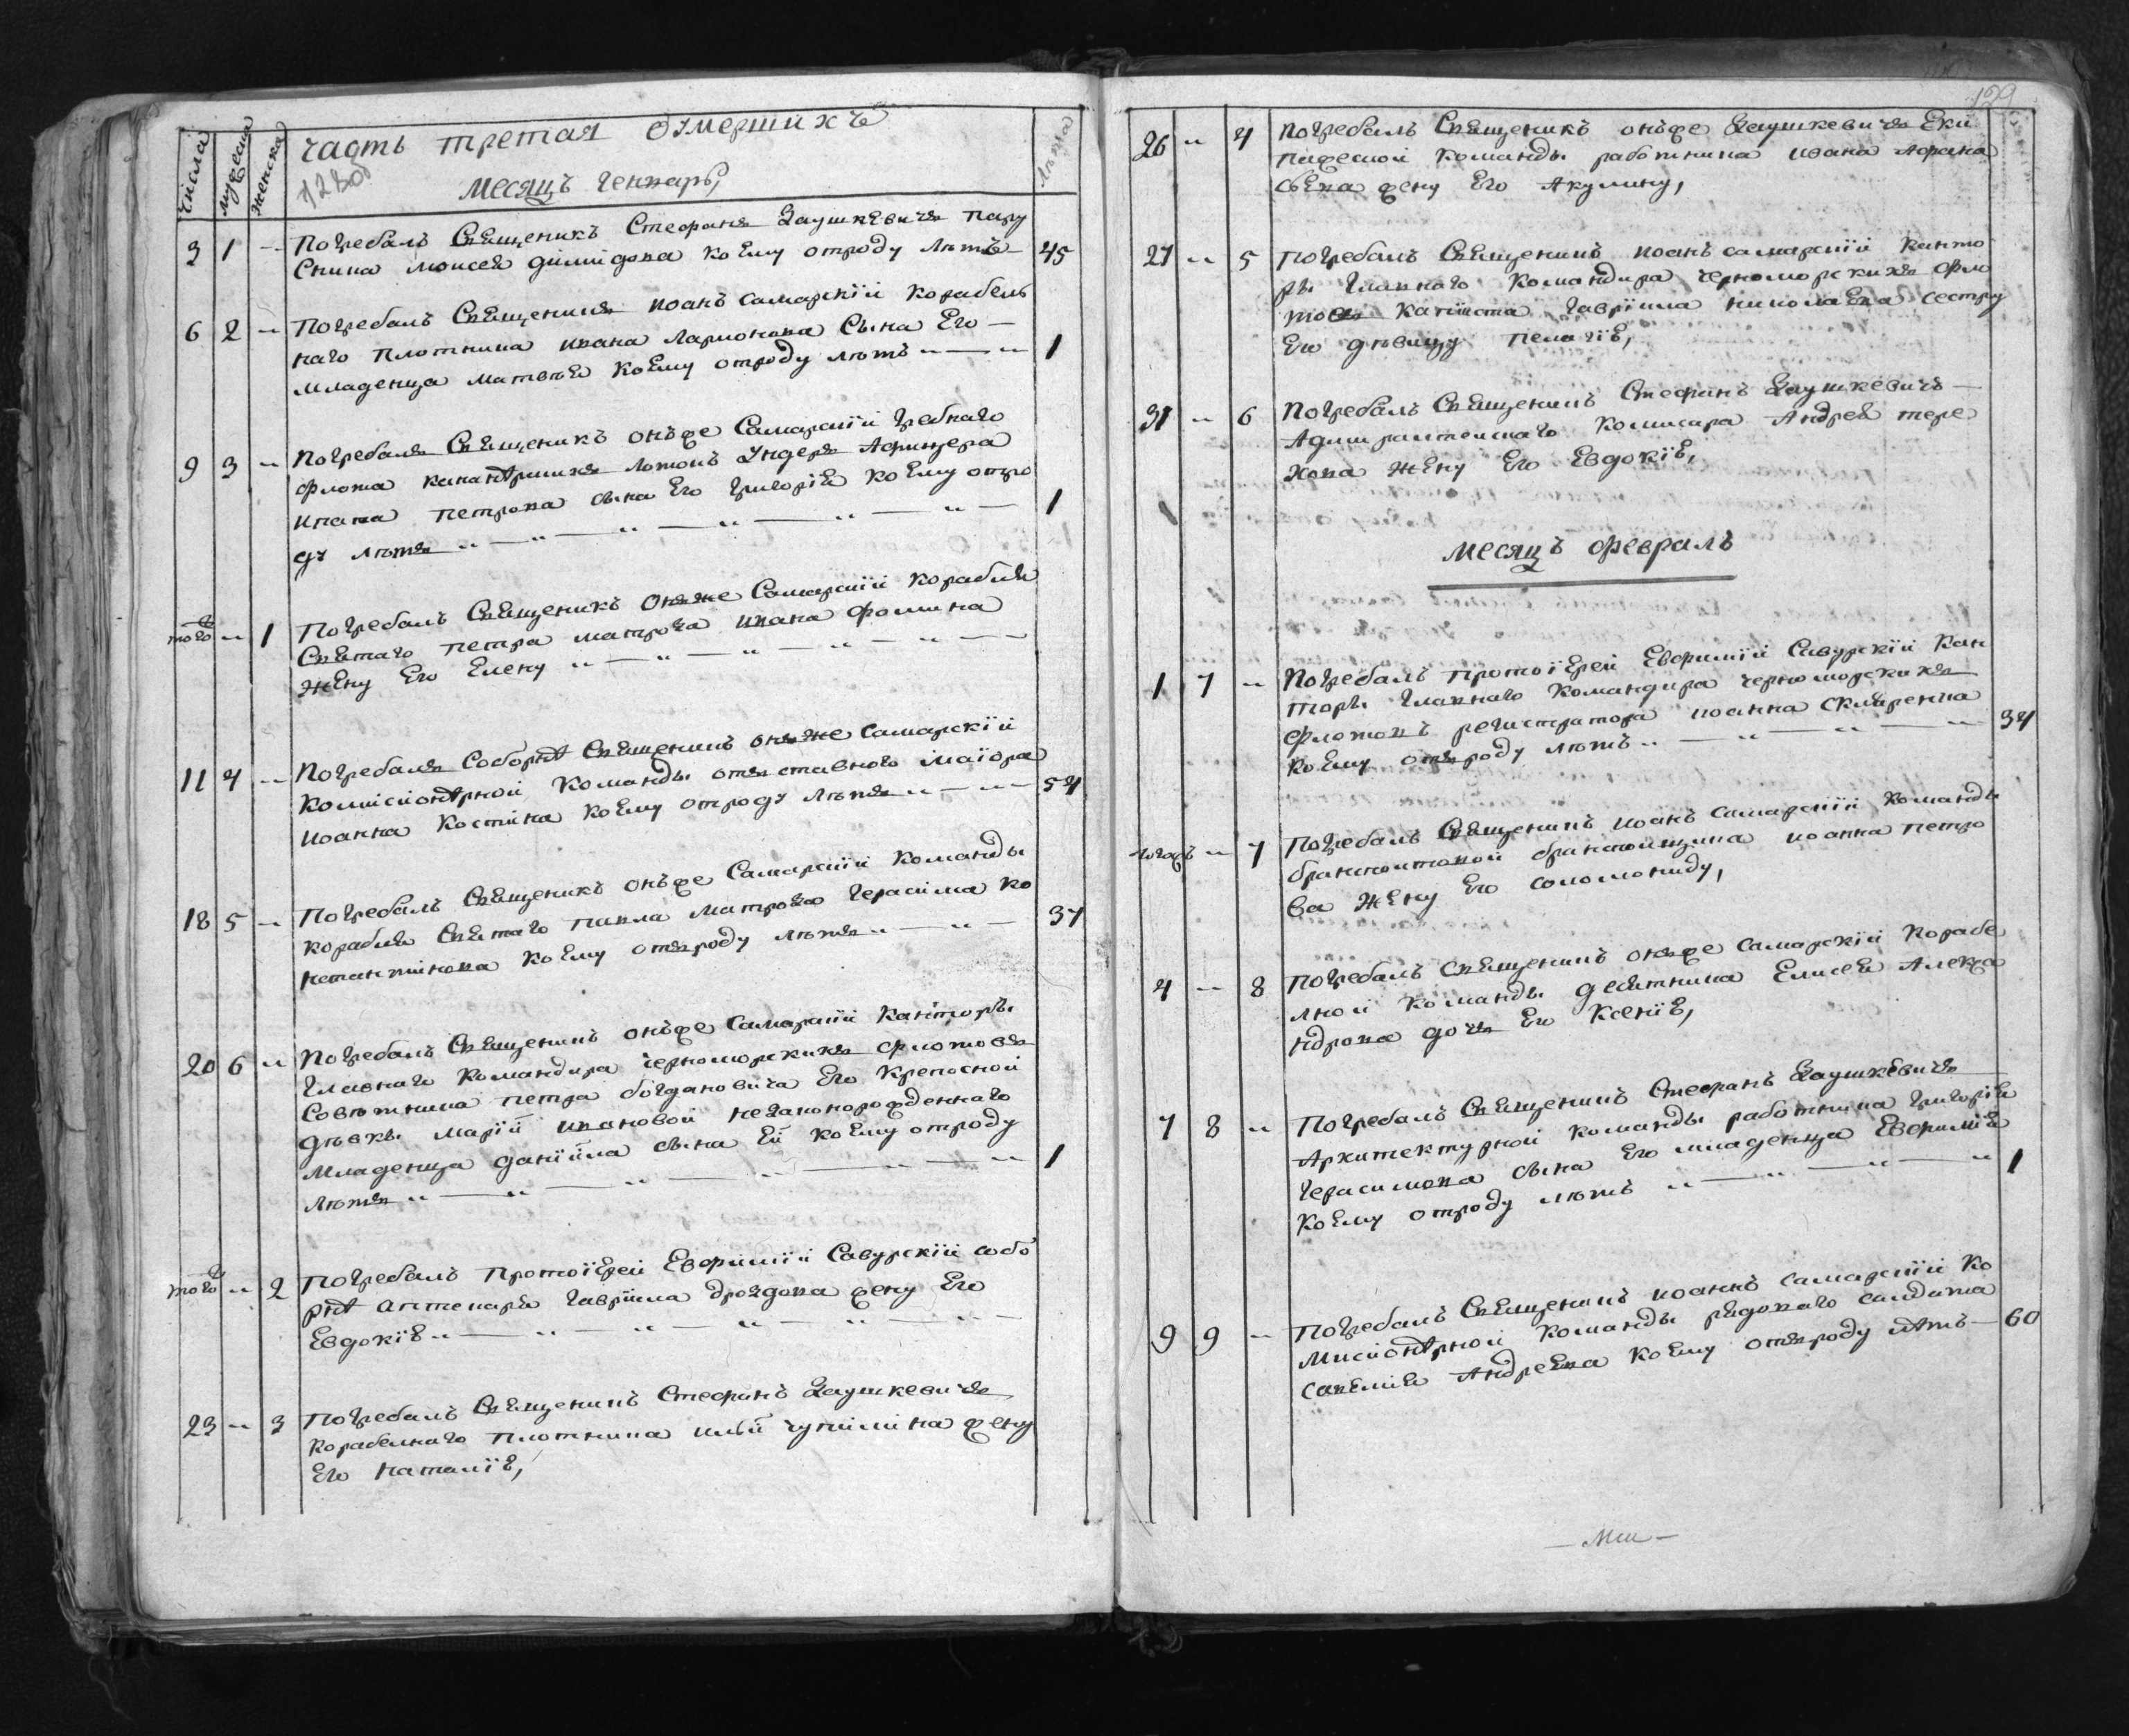 числа мужеска женска
часть третая Оумершихъ
1280
Лѣта
Месяцъ Генварь,
3 1 Погребалъ Священикъ Стефанъ Заушкевичъ пару
сника Моисея Димидова коему отроду лѣтъ 45
6 2 Погребалъ Священикъ иоанъ самарскїй корабель
наго плотника ивана Ларионова сына Его
младенца матвѣя коему отроду лѣтъ 1
9 3 Погребалъ Священикъ онъже Самарскїй гребнаго
флота
ипата петрова сына Его григорїя коему отро
ду лѣтъ 1
того ж 1 Погребалъ Священикъ Онъже Самарскїй корабля
Святаго петра матроза ивана фомина
жену Его Елену
11 4 Погребалъ Соборнѣ Священикъ онъже самарскїй
комисионерной команды отъставного маїора
иоанна костина коему отроду лѣтъ 54
18 5 Погребалъ Священикъ онъже Самарскїй команды
корабля Святаго павла матроза герасима ко
нстантинова коему отъроду лѣтъ 37
20 6 Погребалъ Священикъ онъже Самарскїй канторы
главнаго командира черноморскихъ флотовъ
Совѣтника петра богдановича Его крепосной
дѣвки Марїи ивановой незаконорожденнаго
младенца данїила сына Ей коему отроду
лѣтъ 1
того ж 2 Погребалъ Протоїерей Евфимїй Савурскїй собо
рнѣ аптекаря гаврїила дроздова жену Его
Евдокїю
23 3 Погребалъ Священикъ Стефанъ Заушкевичъ
корабелнаго плотника илїи чупилина жену
Его наталїю,
129
26 4 Погребалъ Священикъ онъже Заушкевичъ Еки
пажеской команды работника ивана Афана
сьева жену Его Акулину,
27 5 Погребалъ Священикъ иоанъ самарскїй канто
ры главнаго командира черноморскихъ фло
товъ капиїста гаврїила николаева сестру
Его дѣвицу пелагїю,
31 6 Погребалъ Священикъ Стефанъ Заушкевичъ
Адмиралтейскаго комисара Андрея тере
хова жену Его Евдокїю,
месяцъ февраль
1 7 Погребалъ протоїерей Евфимїй Савурскїй кан
торы главнаго командира черноморскихъ
флотовъ регистратора иоанна скляренка
коему отъроду лѣтъ 34
7 Погребалъ Священикъ иоанъ самарскїй команды
брантвахтовой иоанна петро
ва жену Его соломониду,
4 8 Погребалъ Священикъ онъже самарскїй корабе
лной команды десятника Елисея Алекса
ндрова дочъ Его ксенїю,
7 8 Погребалъ Священикъ Стефанъ Заушкевичъ
Архитектурной команды работника григорїя
герасимова сына Его младенца Евфимїя
коему отроду лѣтъ 1
9 9 Погребалъ Священикъ иоаннъ самарскїй ко
мисионерной команды рядоваго салдата
савелия Андреева коему отъроду лѣтъ 60